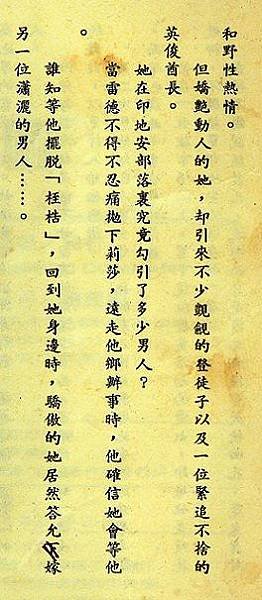 和野性熱情。
但嬌艷動人的她，却引來不少覬覦的登徒子以及一位緊追不捨的
英俊酋長。
她在印地安部落裏究竟勾引了多少男人？
當雷德不得不忍痛拋下莉莎，遠走他鄉辦事時，他確信她會等他
。
誰知等他擺脫「桎梏」，回到她身邊時，驕傲的她居然答允下嫁
另一位瀟灑的男人……。